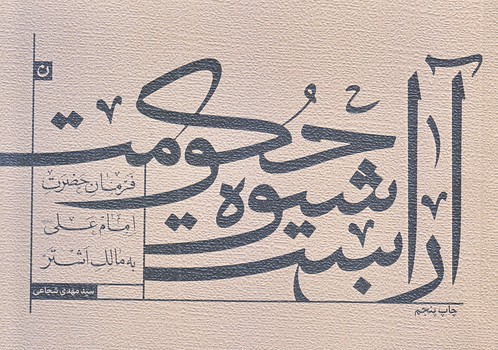 شیوه حکومت
ن
فرمان حضرت
امام علی
به مالک اشتر
سید مهدی شجاعی
چاپ پنجم